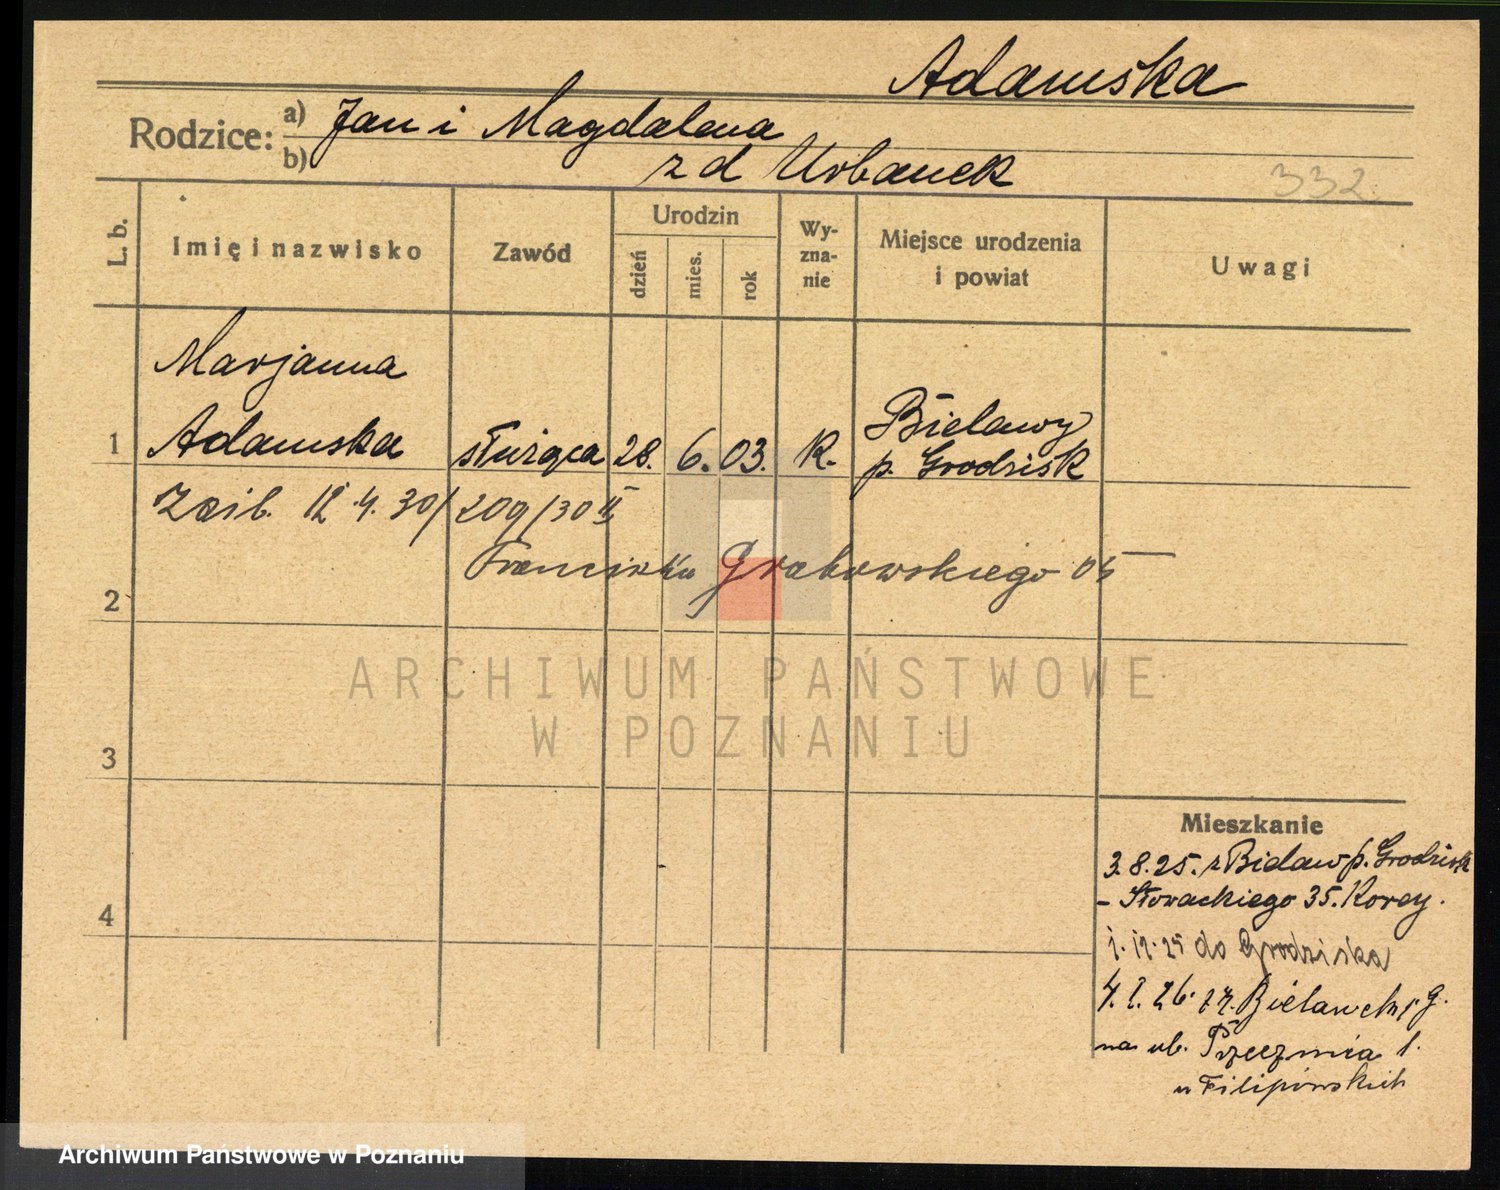 Adamska
Rodzice: a) Jan i Magdalena
b) z d Urbanek
332
L. b.
Imię i nazwisko
Zawód
Urodzin
dzień
mies.
rok
Wy-
zna-
nie
Miejsce urodzenia
i powiat
Uwagi
Marjanna
1 Adamska służąca 28. 6. 03. K. Bielawy
p. Grodzisk
12 4. 30/ 209/30
Grabowskiego
2
3
4
ARCHIWUM PAŃSTWOWE
W POZNANIU
Mieszkanie
3.8.25. z Bielaw p. Grodzisk
- Słowackiego 35.
do Grodziska
4. 1. 26.
na ub.
u Filipowskich
Archiwum Państwowe w Poznaniu